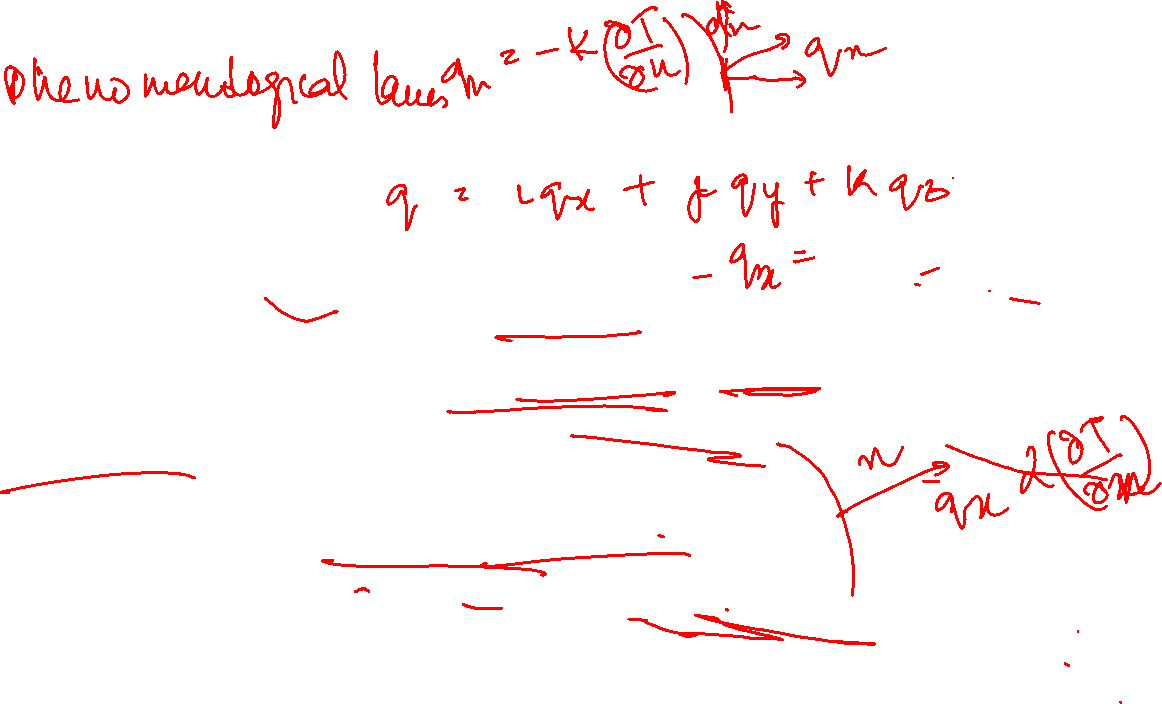 Phenomenological laws qn = -K(∂T/∂n) qn
q = i qx + j qy + k qz
- qx =
n
qx α(∂T/∂x)